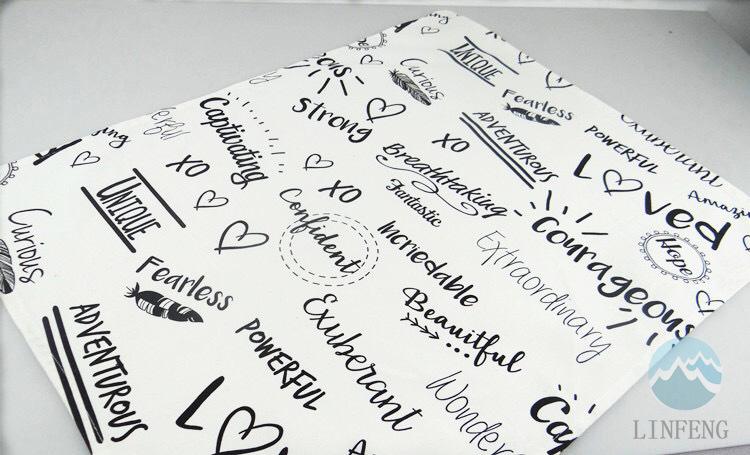 UNIQUE
Curious
Fearless
ADVENTUROUS
POWERFUL
Exuberant
LOved
Amazi
Strong
XO
Captivating
Breathtaking
Fantastic
XO
XO
UNIQUE
Confident
Courageous
Hope
Incriedable
Extraordinary
Curious
Fearless
Beauitful
ADVENTUROUS
POWERFUL
Exuberant
Wonder
LO
Cap
LINFENG